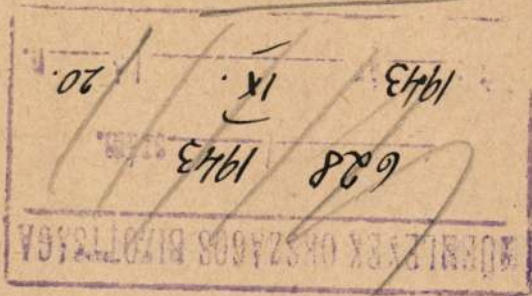 MŰEMLÉKEK ORSZÁGOS BIZOTTSÁGA
628 1943
szám.
1943 IX. 20.